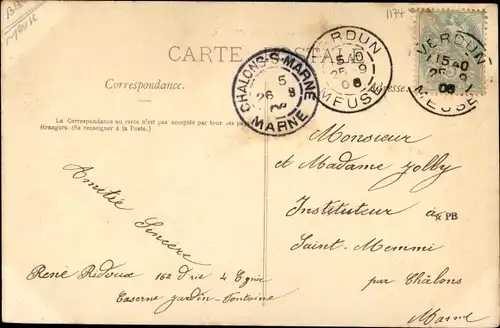 1174
CARTE POSTALE
VERDUN
15 40
25 -9
08
MEUSE
VERDUN
15 40
25 -9
08
MEUSE
CHALONS-S-MARNE
5
26 9
MARNE
Correspondance.
Adresse
La Correspondance au recto n'est pas acceptée par tous les pays
étrangers. (Se renseigner à la Poste.)
Amitié
Sincère
René Ridoux 162e
Caserne Jardin-Fontaine
Monsieur
et Madame Jolly
Instituteur à
PB
Saint-Memmi
par Châlons
Marne